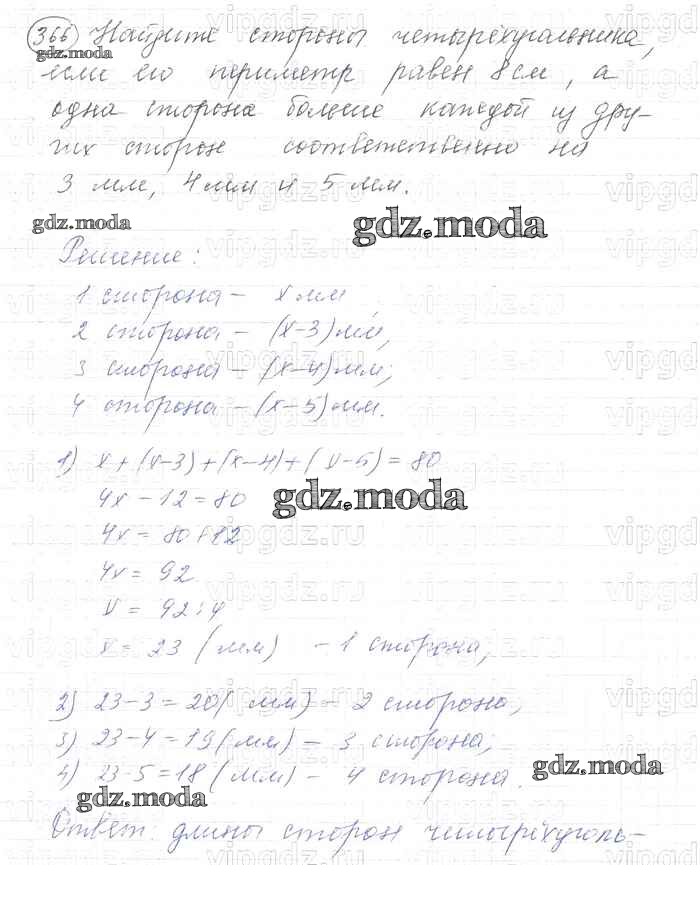 366) Найдите стороны четырёхугольника,
gdz.moda
если его периметр равен 8 см, а
одна сторона больше каждой из дру-
гих сторон соответственно на
3 мм, 4 мм и 5 мм.
gdz.moda
gdz.moda
Решение:
1 сторона – x мм,
2 сторона – (x-3) мм,
3 сторона – (x-4) мм;
4 сторона – (x-5) мм.
1) x + (x-3) + (x-4) + (x-5) = 80
4x - 12 = 80
gdz.moda
4x = 80 + 12
4x = 92
x = 92 : 4
x = 23 (мм) – 1 сторона,
2) 23-3 = 20 (мм) – 2 сторона,
3) 23-4 = 19 (мм) – 3 сторона;
4) 23-5 = 18 (мм) – 4 сторона.
gdz.moda
gdz.moda
Ответ: длины сторон четырёхуголь-
vipgdz.ru